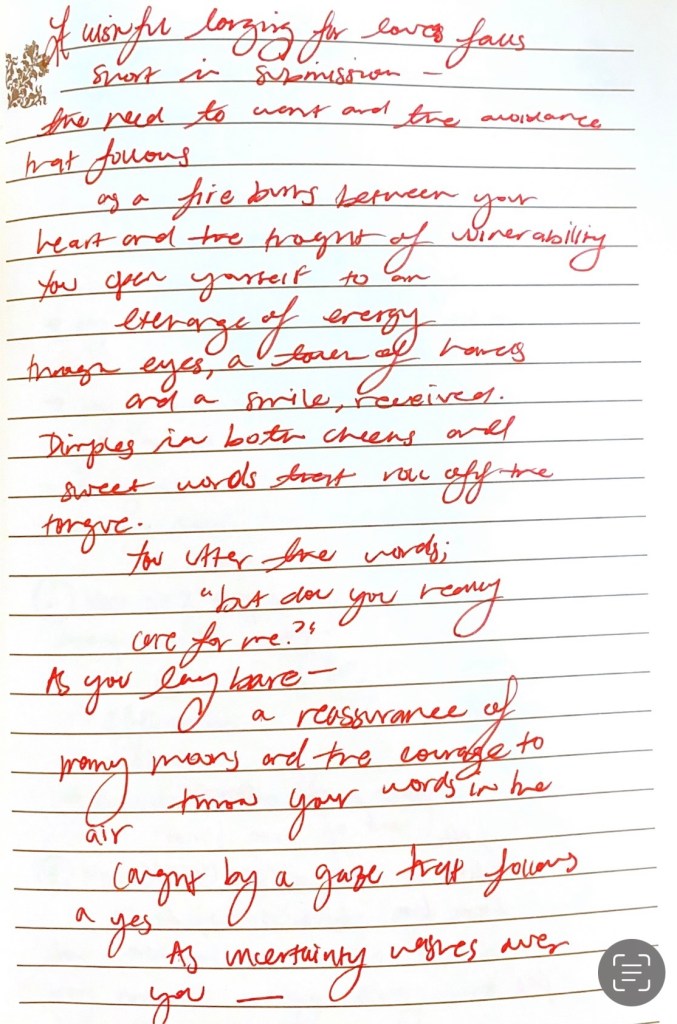 If wishful longing for loves falls
short in submission –
the need to want and the avoidance
that follows
as a fire burns between your
heart and the thought of vulnerability
You open yourself to an
exchange of energy
through eyes, a touch of hands
and a smile, received.
Dimples in both cheeks and
sweet words that roll off the
tongue.
You utter the words;
"but do you really
care for me?"
As you lay bare –
a reassurance of
many moons and the courage to
throw your words in the
air
Caught by a gaze that follows
a yes
As uncertainty washes over
you —